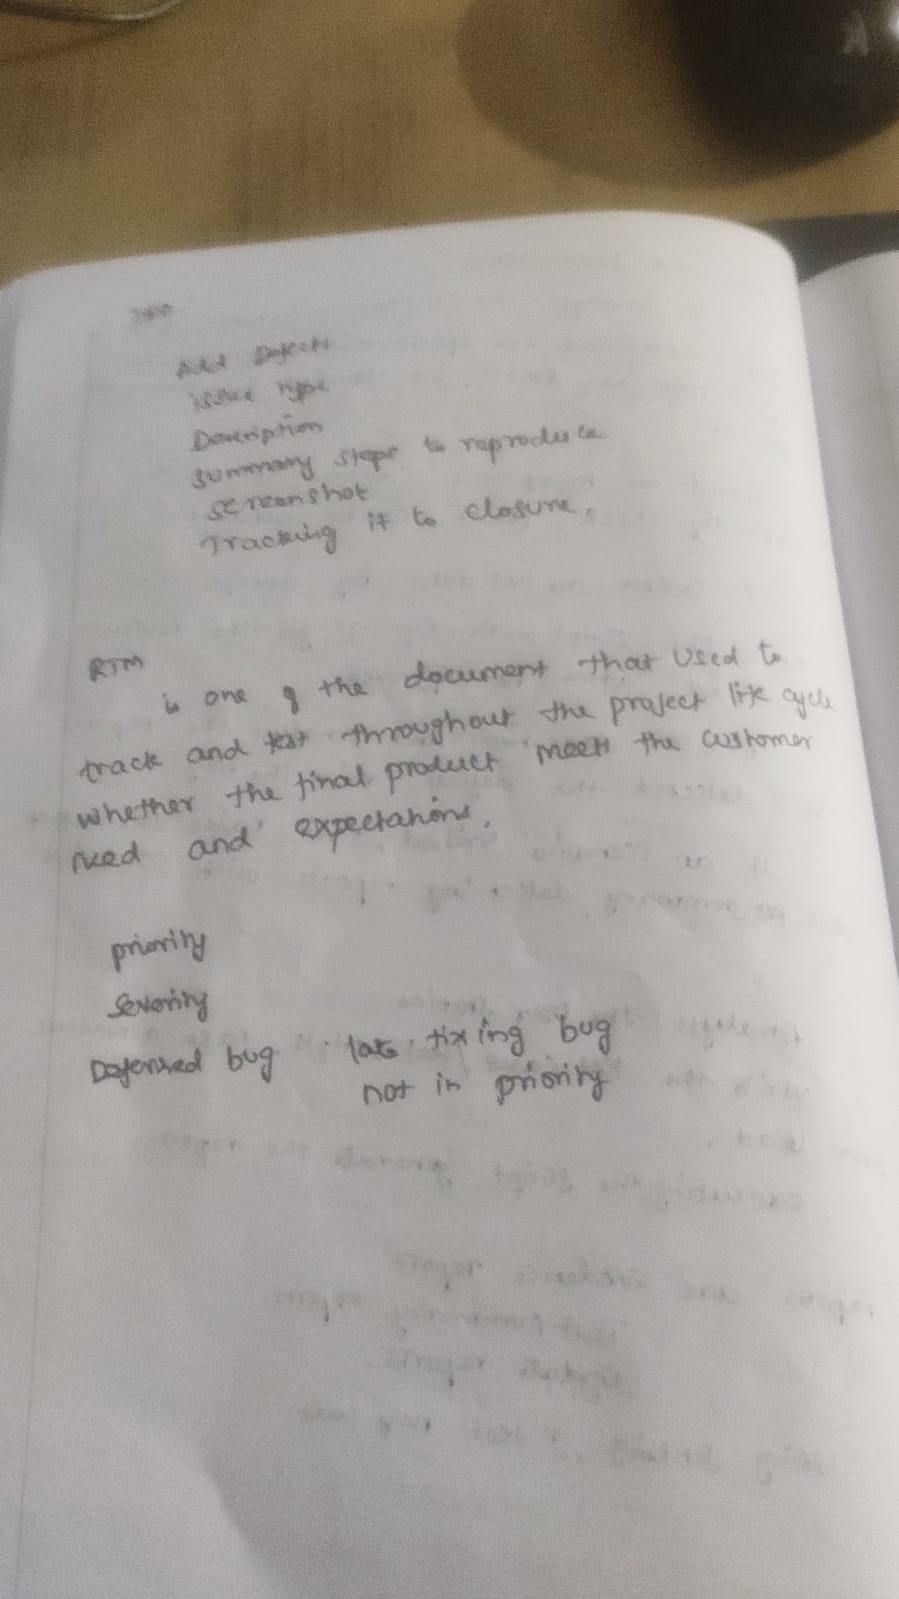 Add Defects
issue type
Description
summary steps to reproduce
screenshot
Tracking it to closure.
RTM
is one of the document that used to
track and test throughout the project life cycle
whether the final product meets the customer
need and expectations.
priority
Severity
Deferred bug late fixing bug
not in priority